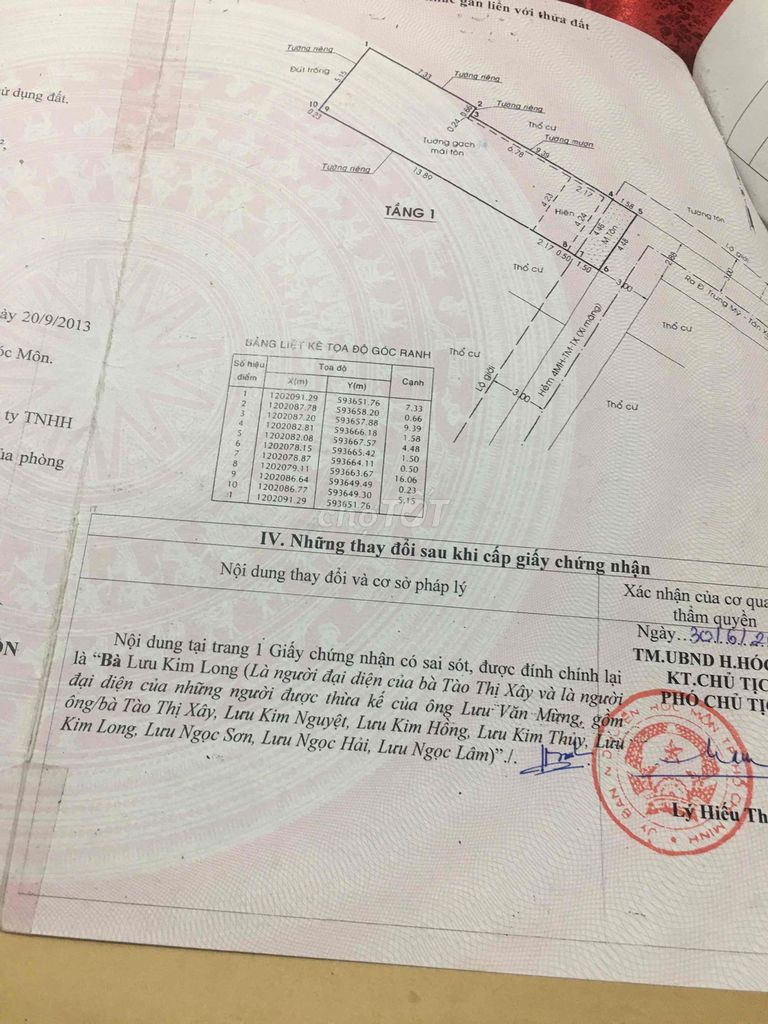 gắn liền với thửa đất
sử dụng đất.
ày 20/9/2013
óc Môn.
ty TNHH
ủa phòng
Tường riêng
1
Đất trống
5.15
7.33
Tường riêng
10
9
0.23
2
Tường riêng
0.66
3
0.24
Thổ cư
Tường mượn
9.39
6.78
Tường gạch
mái tôn
Tường riêng
13.89
TẦNG 1
2.17
4
1.58
5
4.23
Hiên
4.24
4.46
M.Tôn
4.48
2.17
8
7
0.50
1.50
6
Tường tôn
Lộ giới
2.88
3.00
Thổ cư
3.00
Ra Đ. Trung Mỹ - Tân X
Thổ cư
Hẻm 4MH-TM-TX (Xi măng)
Lộ giới
3.00
Thổ cư
Thổ cư
BẢNG LIỆT KÊ TỌA ĐỘ GÓC RANH
Số hiệu điểm Tọa độ Cạnh
X(m) Y(m)
1 1202091.29 593651.76 7.33
2 1202087.78 593658.20 0.66
3 1202087.20 593657.88 9.39
4 1202082.81 593666.18 1.58
5 1202082.08 593667.57 4.48
6 1202078.15 593665.42 1.50
7 1202078.87 593664.11 0.50
8 1202079.11 593663.67 16.06
9 1202086.64 593649.49 0.23
10 1202086.77 593649.30 5.15
1 1202091.29 593651.76
choTOT
IV. Những thay đổi sau khi cấp giấy chứng nhận
Nội dung thay đổi và cơ sở pháp lý
Xác nhận của cơ qua
thẩm quyền
Nội dung tại trang 1 Giấy chứng nhận có sai sót, được đính chính lại
là “Bà Lưu Kim Long (Là người đại diện của bà Tào Thị Xây và là người
đại diện của những người được thừa kế của ông Lưu Văn Mừng, gồm
ông/bà Tào Thị Xây, Lưu Kim Nguyệt, Lưu Kim Hồng, Lưu Kim Thủy, Lưu
Kim Long, Lưu Ngọc Sơn, Lưu Ngọc Hải, Lưu Ngọc Lâm)”./.
Ngày..30/6/2
TM.UBND H.HÓC
KT.CHỦ TỊC
PHÓ CHỦ TỊ
Lý Hiếu Th